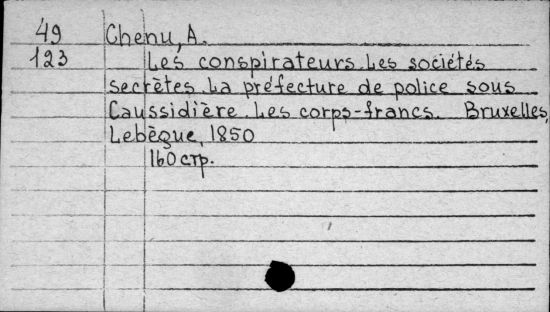 49 Chenu, A.
123 Les conspirateurs. Les sociétés
secrètes. La préfecture de police sous
Caussidière. Les corps-francs. Bruxelles,
Lebèque, 1850
160 стр.